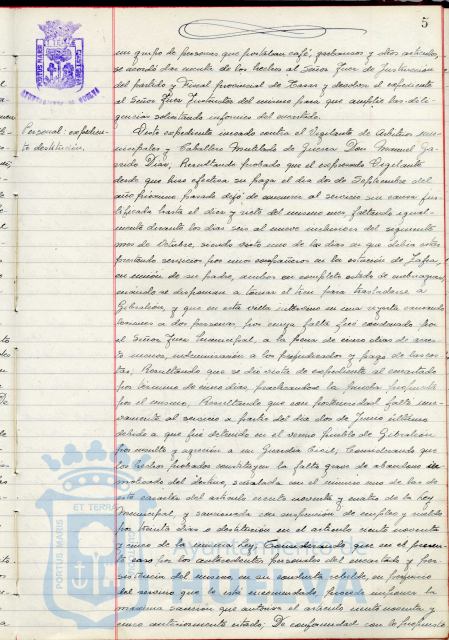 5
PORTUS MARIS
AYUNTAMIENTO DE HUELVA
un grupo de personas que portaban café, garbanzos y otros artículos,
se acordó dar cuenta de los hechos al Señor Juez de Instrucción
del partido y Fiscal provincial de Tasas y devolver el expediente
al Señor Juez Instructor del mismo para que amplíe las dili-
gencias solicitando informes del encartado.
Personal: expedien-
te destitución.
Visto expediente incoado contra el Vigilante de Arbitrios mu-
nicipales y Caballero Mutilado de Guerra Don Manuel Ga-
rrido Díaz, Resultando probado que el expresado Vigilante
desde que hizo efectiva su paga el día dos de Septiembre del
año próximo pasado dejó de concurrir al servicio sin causa jus-
tificada hasta el diez y siete del mismo mes, faltando igual-
mente durante los días seis al nueve inclusives del siguiente
mes de Octubre, siendo visto uno de los días en que debía estar
prestando servicio por unos compañeros en la estación de Zafra,
en unión de su padre, ambos en completo estado de embriaguez,
cuando se disponían a tomar el tren para trasladarse a
Gibraleón, y que en esta villa intervino en una reyerta causando
lesiones a dos personas, por cuya falta fué condenado por
el Señor Juez Municipal, a la pena de cinco días de arres-
to menor, indemnización a los perjudicados y pago de las cos-
tas, Resultando que se dió vista de expediente al encartado
por término de cinco días, practicándose la prueba propuesta
por el mismo, Resultando que con posterioridad falta nue-
vamente al servicio a partir del día dos de Junio último
debido a que fué detenido en el vecino pueblo de Gibraleón
por insulto y agresión a un Guardia Civil, Considerando que
los hechos probados constituyen la falta grave de abandono in-
motivado del destino, señalada en el número uno de las de
este carácter del artículo ciento noventa y cuatro de la Ley
Municipal, y sancionada con suspensión de empleo y sueldo
por treinta días o destitución en el artículo ciento noventa
y cinco de la misma Ley, Considerando que en el presen-
te caso por los antecedentes personales del encartado y per-
sistencia del mismo, en su conducta rebelde, en perjuicio
del servicio que le está encomendado, procede imponer la
máxima sanción que autoriza el artículo ciento noventa y
cinco anteriormente citado; De conformidad con lo propuesto
PORTUS MARIS ET TERRAE
Ayuntamiento de